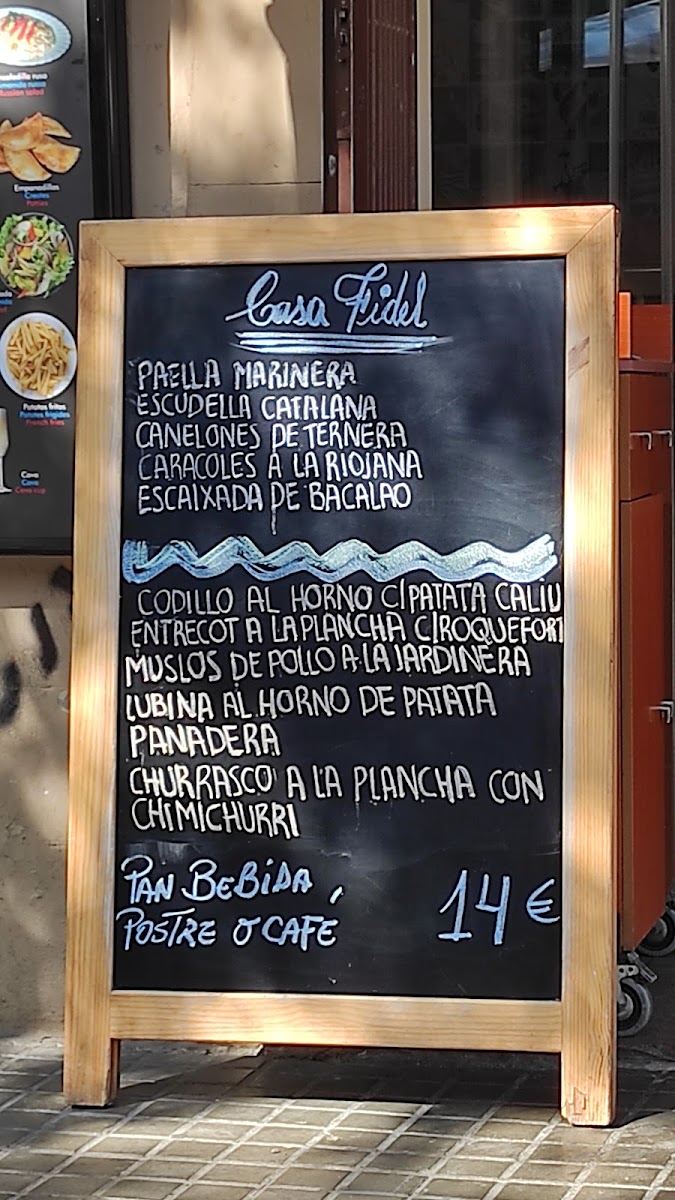 Russian salad
Empanadillas
Crestes
Patties
Patatas fritas
Patates fregides
French fries
Cava
Cava
Cava cup
Casa Fidel
PAELLA MARINERA
ESCUDELLA CATALANA
CANELONES DE TERNERA
CARACOLES A LA RIOJANA
ESCAIXADA DE BACALAO
CODILLO AL HORNO C/PATATA CALIU
ENTRECOT A LA PLANCHA C/ROQUEFORT
MUSLOS DE POLLO A LA JARDINERA
LUBINA AL HORNO DE PATATA
PANADERA
CHURRASCO A LA PLANCHA CON
CHIMICHURRI
PAN BEBIDA,
POSTRE O CAFE
14 €